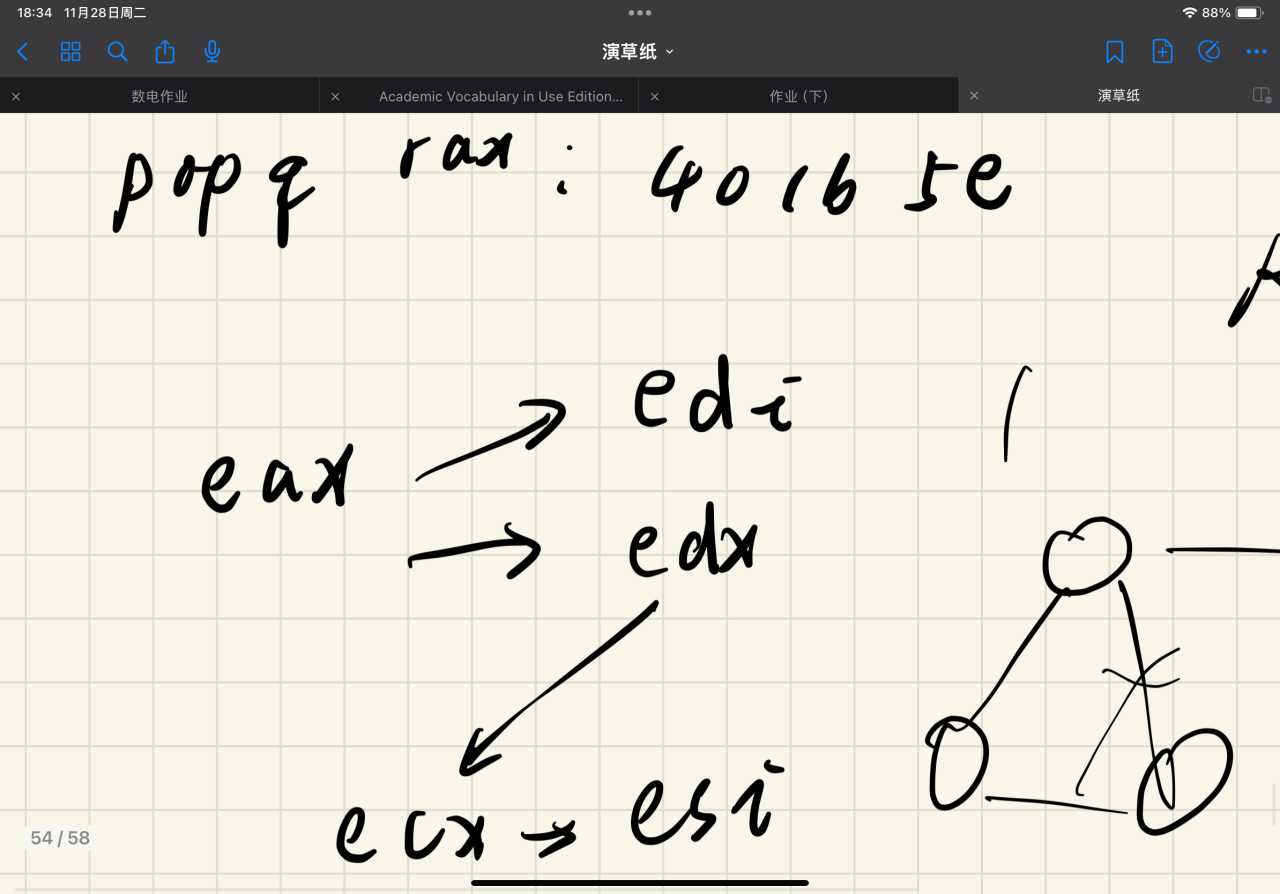 18:34 11月28日周二
88%
演草纸
数电作业
Academic Vocabulary in Use Edition...
作业 (下)
演草纸
popq rax : 401b5e
edi
eax
edx
ecx → esi
54 / 58